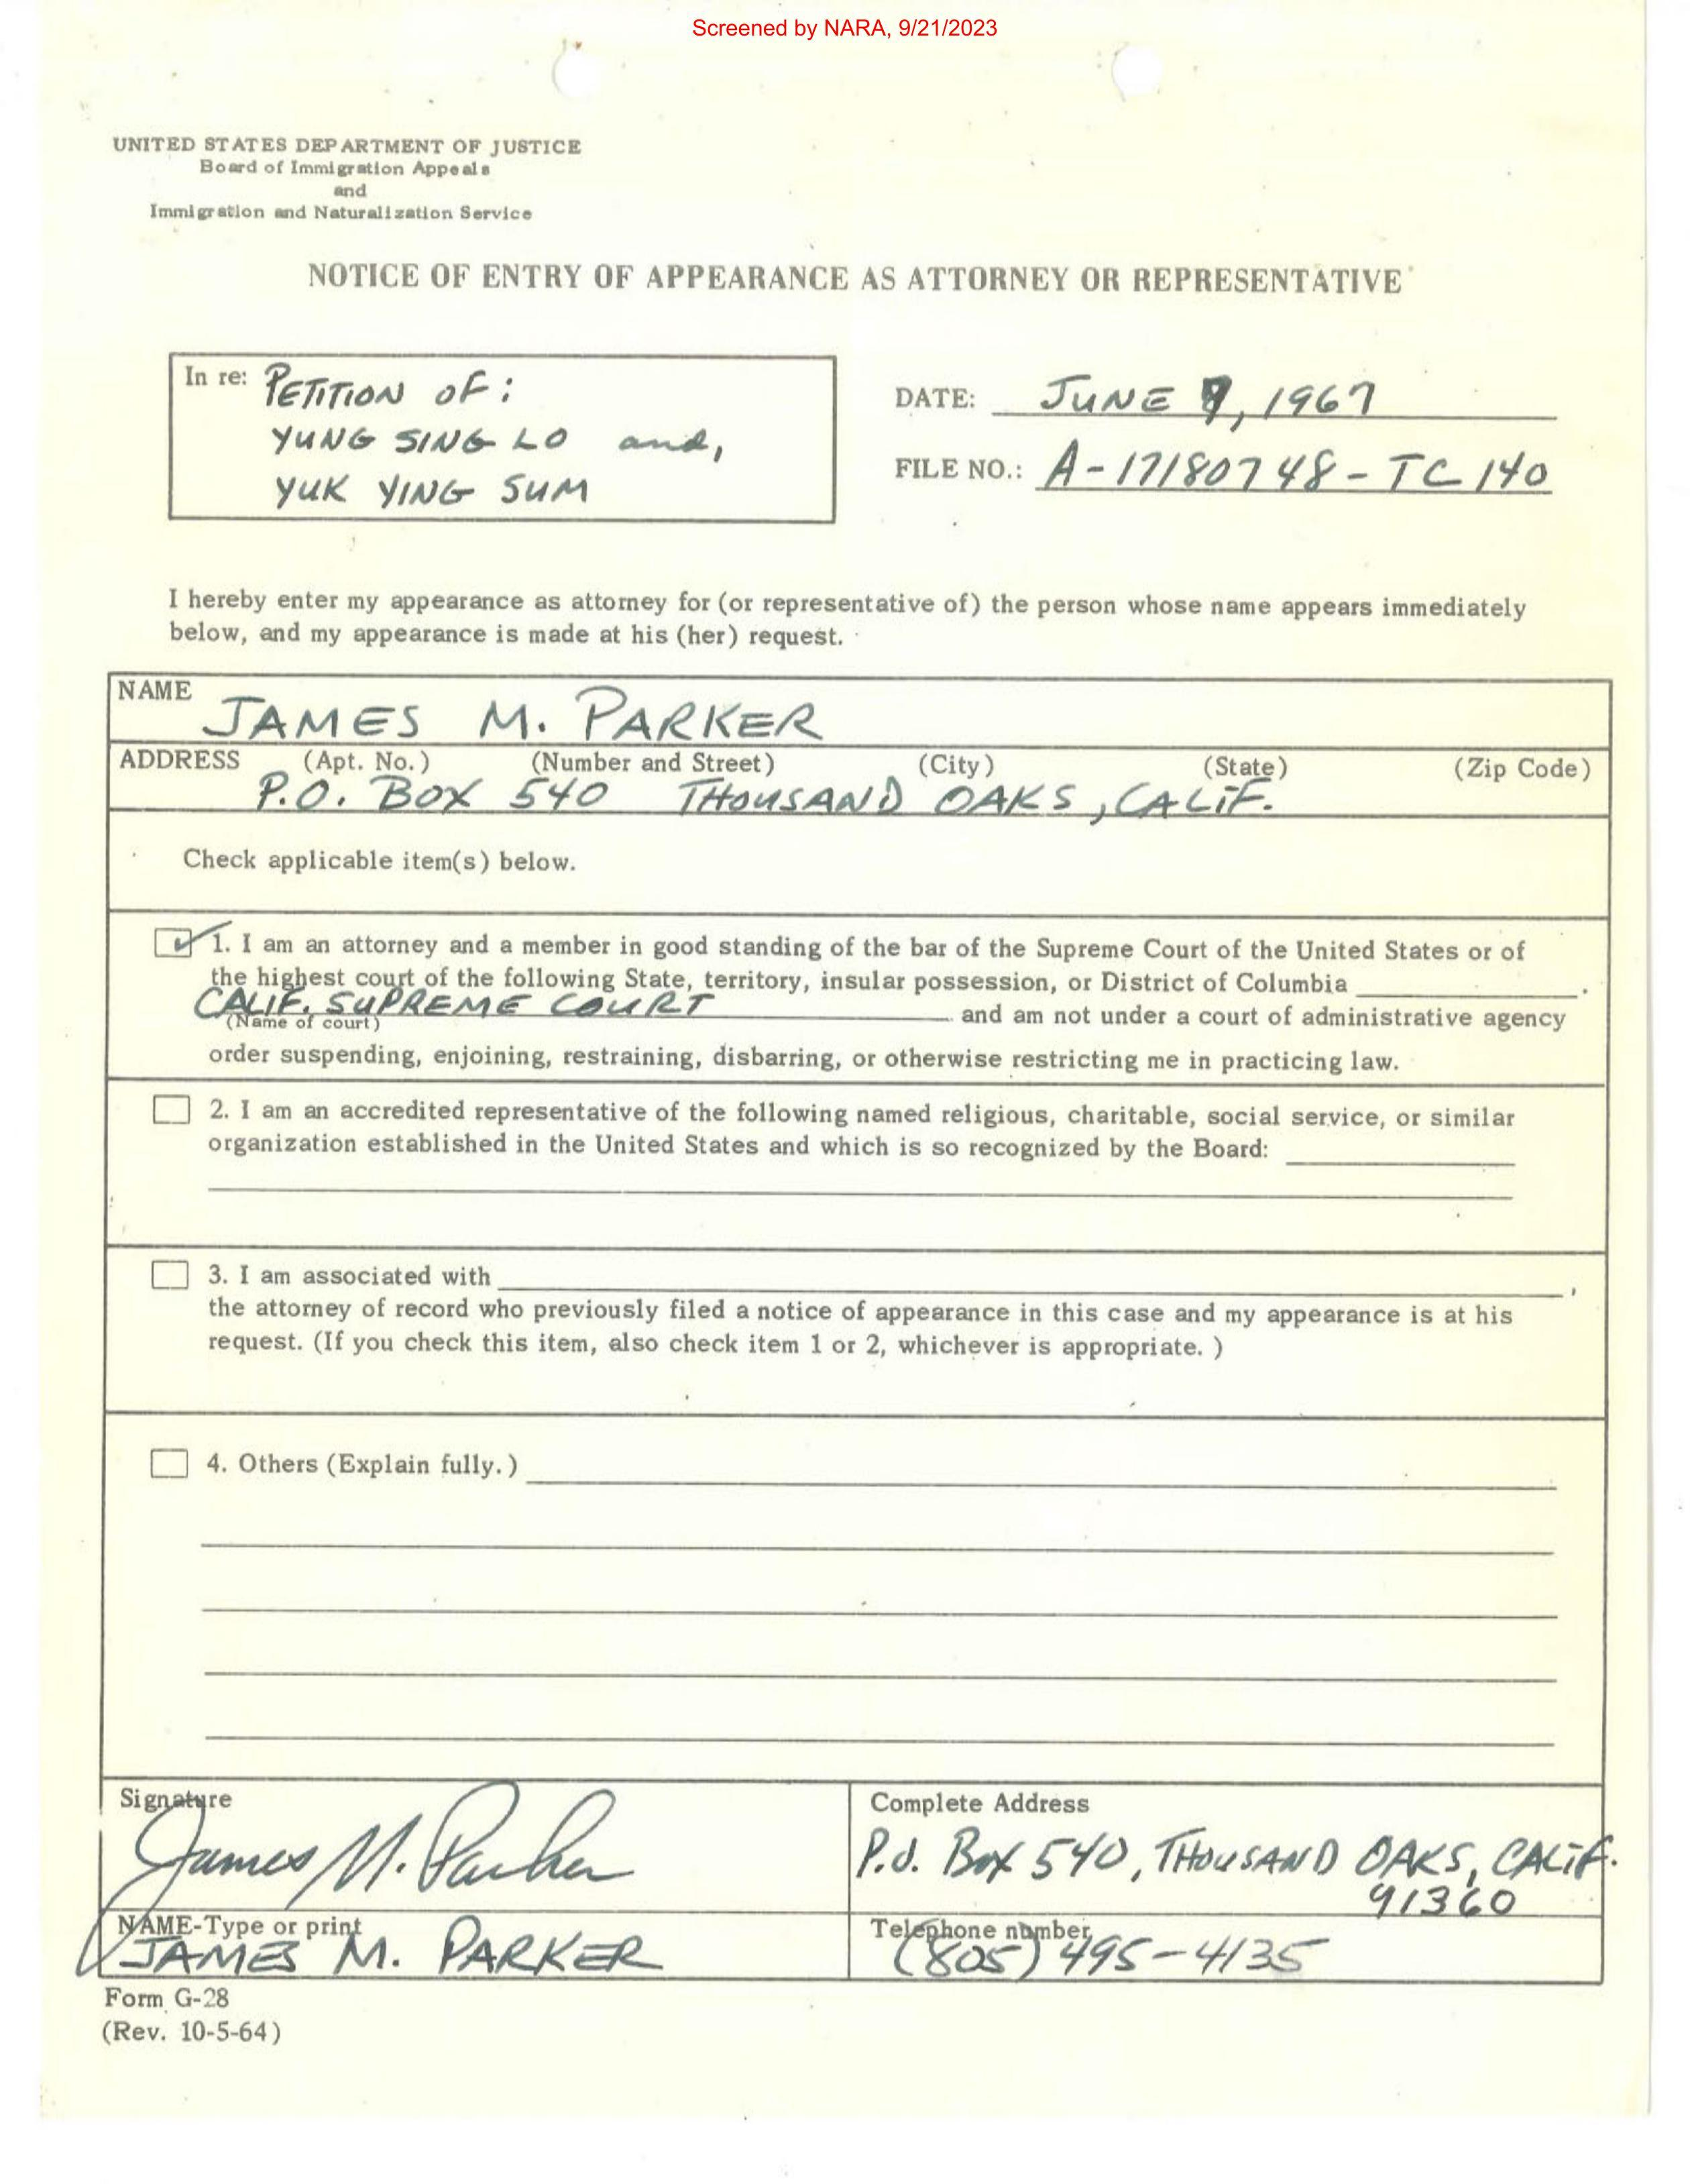 Screened by NARA, 9/21/2023
UNITED STATES DEPARTMENT OF JUSTICE
Board of Immigration Appeals
and
Immigration and Naturalization Service
NOTICE OF ENTRY OF APPEARANCE AS ATTORNEY OR REPRESENTATIVE
In re: PETITION OF:
YUNG SING LO and,
YUK YING SUM
DATE: JUNE 9, 1967
FILE NO.: A-17180748-TC 140
I hereby enter my appearance as attorney for (or representative of) the person whose name appears immediately
below, and my appearance is made at his (her) request.
NAME
JAMES M. PARKER
ADDRESS (Apt. No.) (Number and Street) (City) (State) (Zip Code)
P.O. BOX 540 THOUSAND OAKS, CALIF.
Check applicable item(s) below.
1. I am an attorney and a member in good standing of the bar of the Supreme Court of the United States or of
the highest court of the following State, territory, insular possession, or District of Columbia .
CALIF. SUPREME COURT and am not under a court of administrative agency
(Name of court)
order suspending, enjoining, restraining, disbarring, or otherwise restricting me in practicing law.
2. I am an accredited representative of the following named religious, charitable, social service, or similar
organization established in the United States and which is so recognized by the Board:
3. I am associated with ,
the attorney of record who previously filed a notice of appearance in this case and my appearance is at his
request. (If you check this item, also check item 1 or 2, whichever is appropriate. )
4. Others (Explain fully.)
Signature
James M. Parker
Complete Address
P.O. Box 540, THOUSAND OAKS, CALIF.
91360
NAME-Type or print
JAMES M. PARKER
Telephone number
(805) 495-4135
Form G-28
(Rev. 10-5-64)